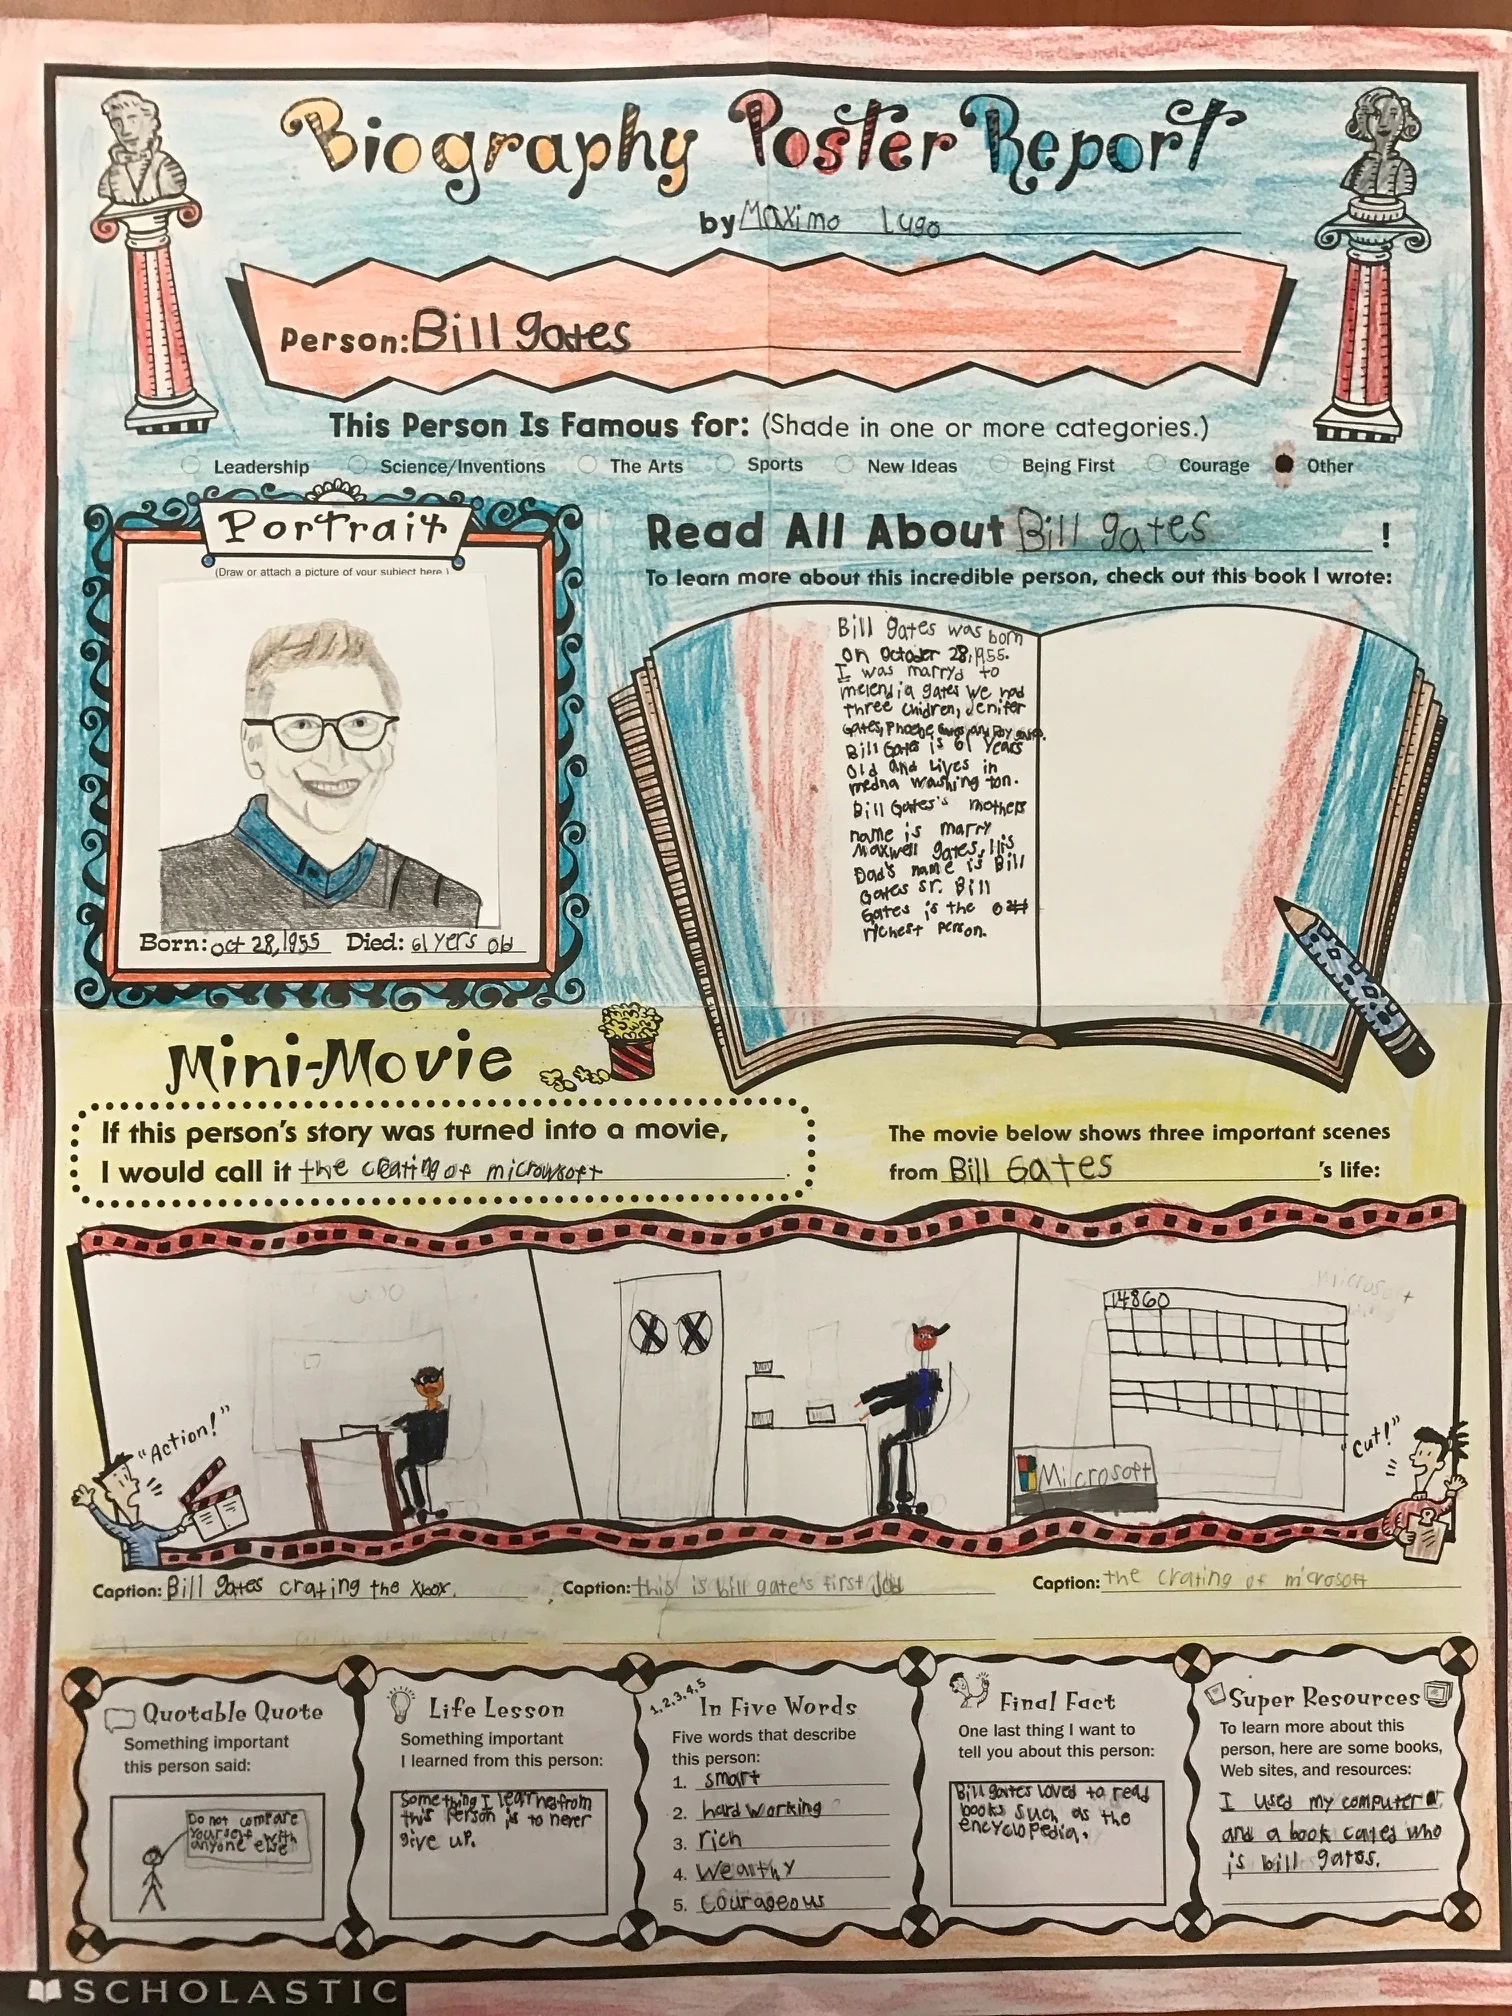 Biography Poster Report
by Maximo Lugo
Person: Bill gates
This Person Is Famous for: (Shade in one or more categories.)
Leadership Science/Inventions The Arts Sports New Ideas Being First Courage Other
Portrait
(Draw or attach a picture of your subject here.)
Born: oct 28,1955 Died: 61 yers old
Read All About Bill gates !
To learn more about this incredible person, check out this book I wrote:
Bill gates was born
on October 28,1955.
I was marryd to
melendia gates we had
three chidren, Jenifer
Gates, Phoebe gates and Roy gates.
Bill Gates is 61 years
old and Lives in
medna washing ton.
Bill Gates's mothers
name is marry
Maxwell gates, His
Dad's name is Bill
Gates sr. Bill
Gates is the
richest person.
Mini-Movie
If this person's story was turned into a movie,
I would call it the crating of microwsoft .
The movie below shows three important scenes
from Bill Gates 's life:
"Action!"
14860
Microsoft
Microsoft
"Cut!"
Caption: Bill gates crating the Xbox.
Caption: this is bill gate's first Job
Caption: the crating of microsoft
Quotable Quote
Something important
this person said:
Do not compare
yourself with
anyone else
Life Lesson
Something important
I learned from this person:
Something I learne from
this Person is to never
give up.
1,2,3,4,5
In Five Words
Five words that describe
this person:
1. smart
2. hard working
3. rich
4. wealthy
5. courageous
Final Fact
One last thing I want to
tell you about this person:
Bill gates loved to read
books such as the
encyclopedia.
Super Resources
To learn more about this
person, here are some books,
Web sites, and resources:
I used my computer
and a book caled who
is bill gates.
SCHOLASTIC